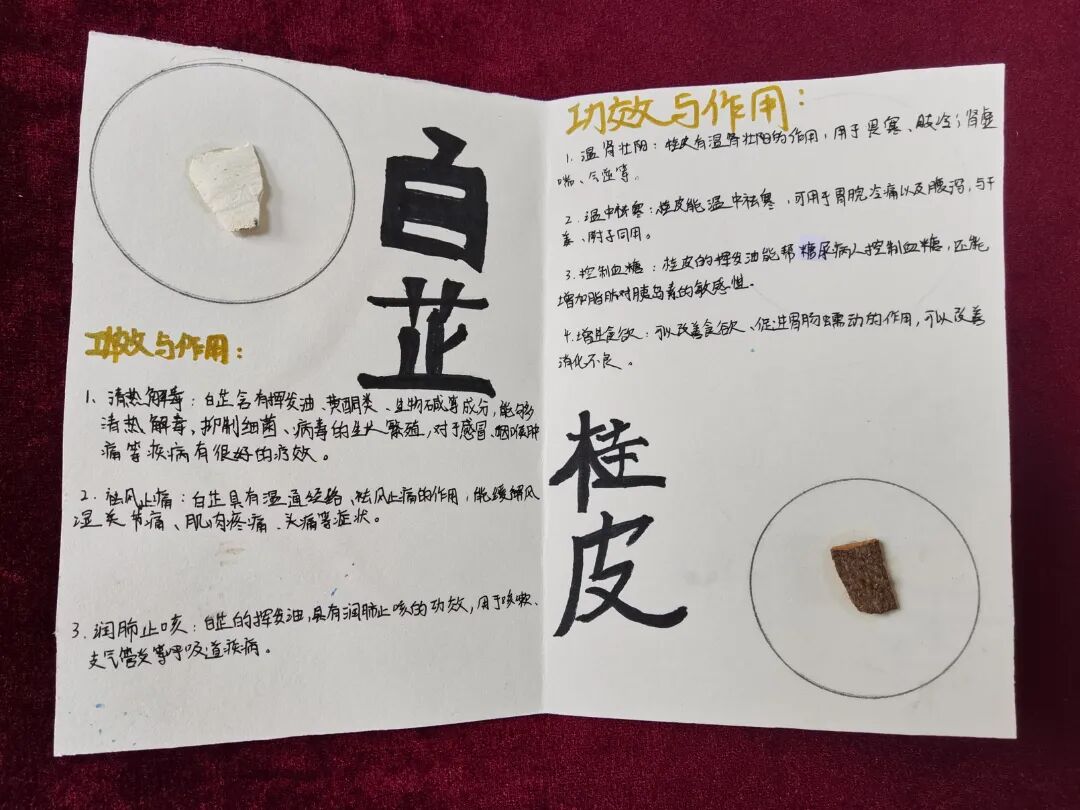 白芷
功效与作用：
1、清热解毒：白芷含有挥发油、黄酮类、生物碱等成分，能够
清热解毒、抑制细菌、病毒的生长繁殖，对于感冒、咽喉肿
痛等疾病有很好的疗效。
2、祛风止痛：白芷具有温通经络、祛风止痛的作用，能缓解风
湿关节痛、肌肉疼痛、头痛等症状。
3、润肺止咳：白芷的挥发油，具有润肺止咳的功效，用于咳嗽、
支气管炎等呼吸道疾病。
功效与作用：
1、温肾壮阳：桂皮有温肾壮阳的作用，用于畏寒、肢冷；肾虚
喘、气逆等。
2、温中祛寒：桂皮能温中祛寒，可用于胃脘冷痛以及腹泻，与干
姜、附子同用。
3、控制血糖：桂皮的挥发油能帮糖尿病人控制血糖，还能
增加脂肪对胰岛素的敏感性。
4、增进食欲：可以改善食欲、促进胃肠蠕动的作用，可以改善
消化不良。
桂皮